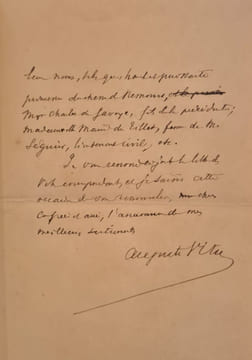 leur nous, tels que haut et puissante
princesse duchesse de Nemours,
Mgr Charles de Savoye, fils de la précédente;
mademoiselle Marie de Tillet, femme de M.
Séguier, lieutenant civil, etc.
Je vous renvoie ci-joint la lettre de
votre correspondant, et je saisis cette
occasion de vous renouveler, mon cher
confrère et ami, l'assurance de mes
meilleurs sentiments
Auguste Vitu